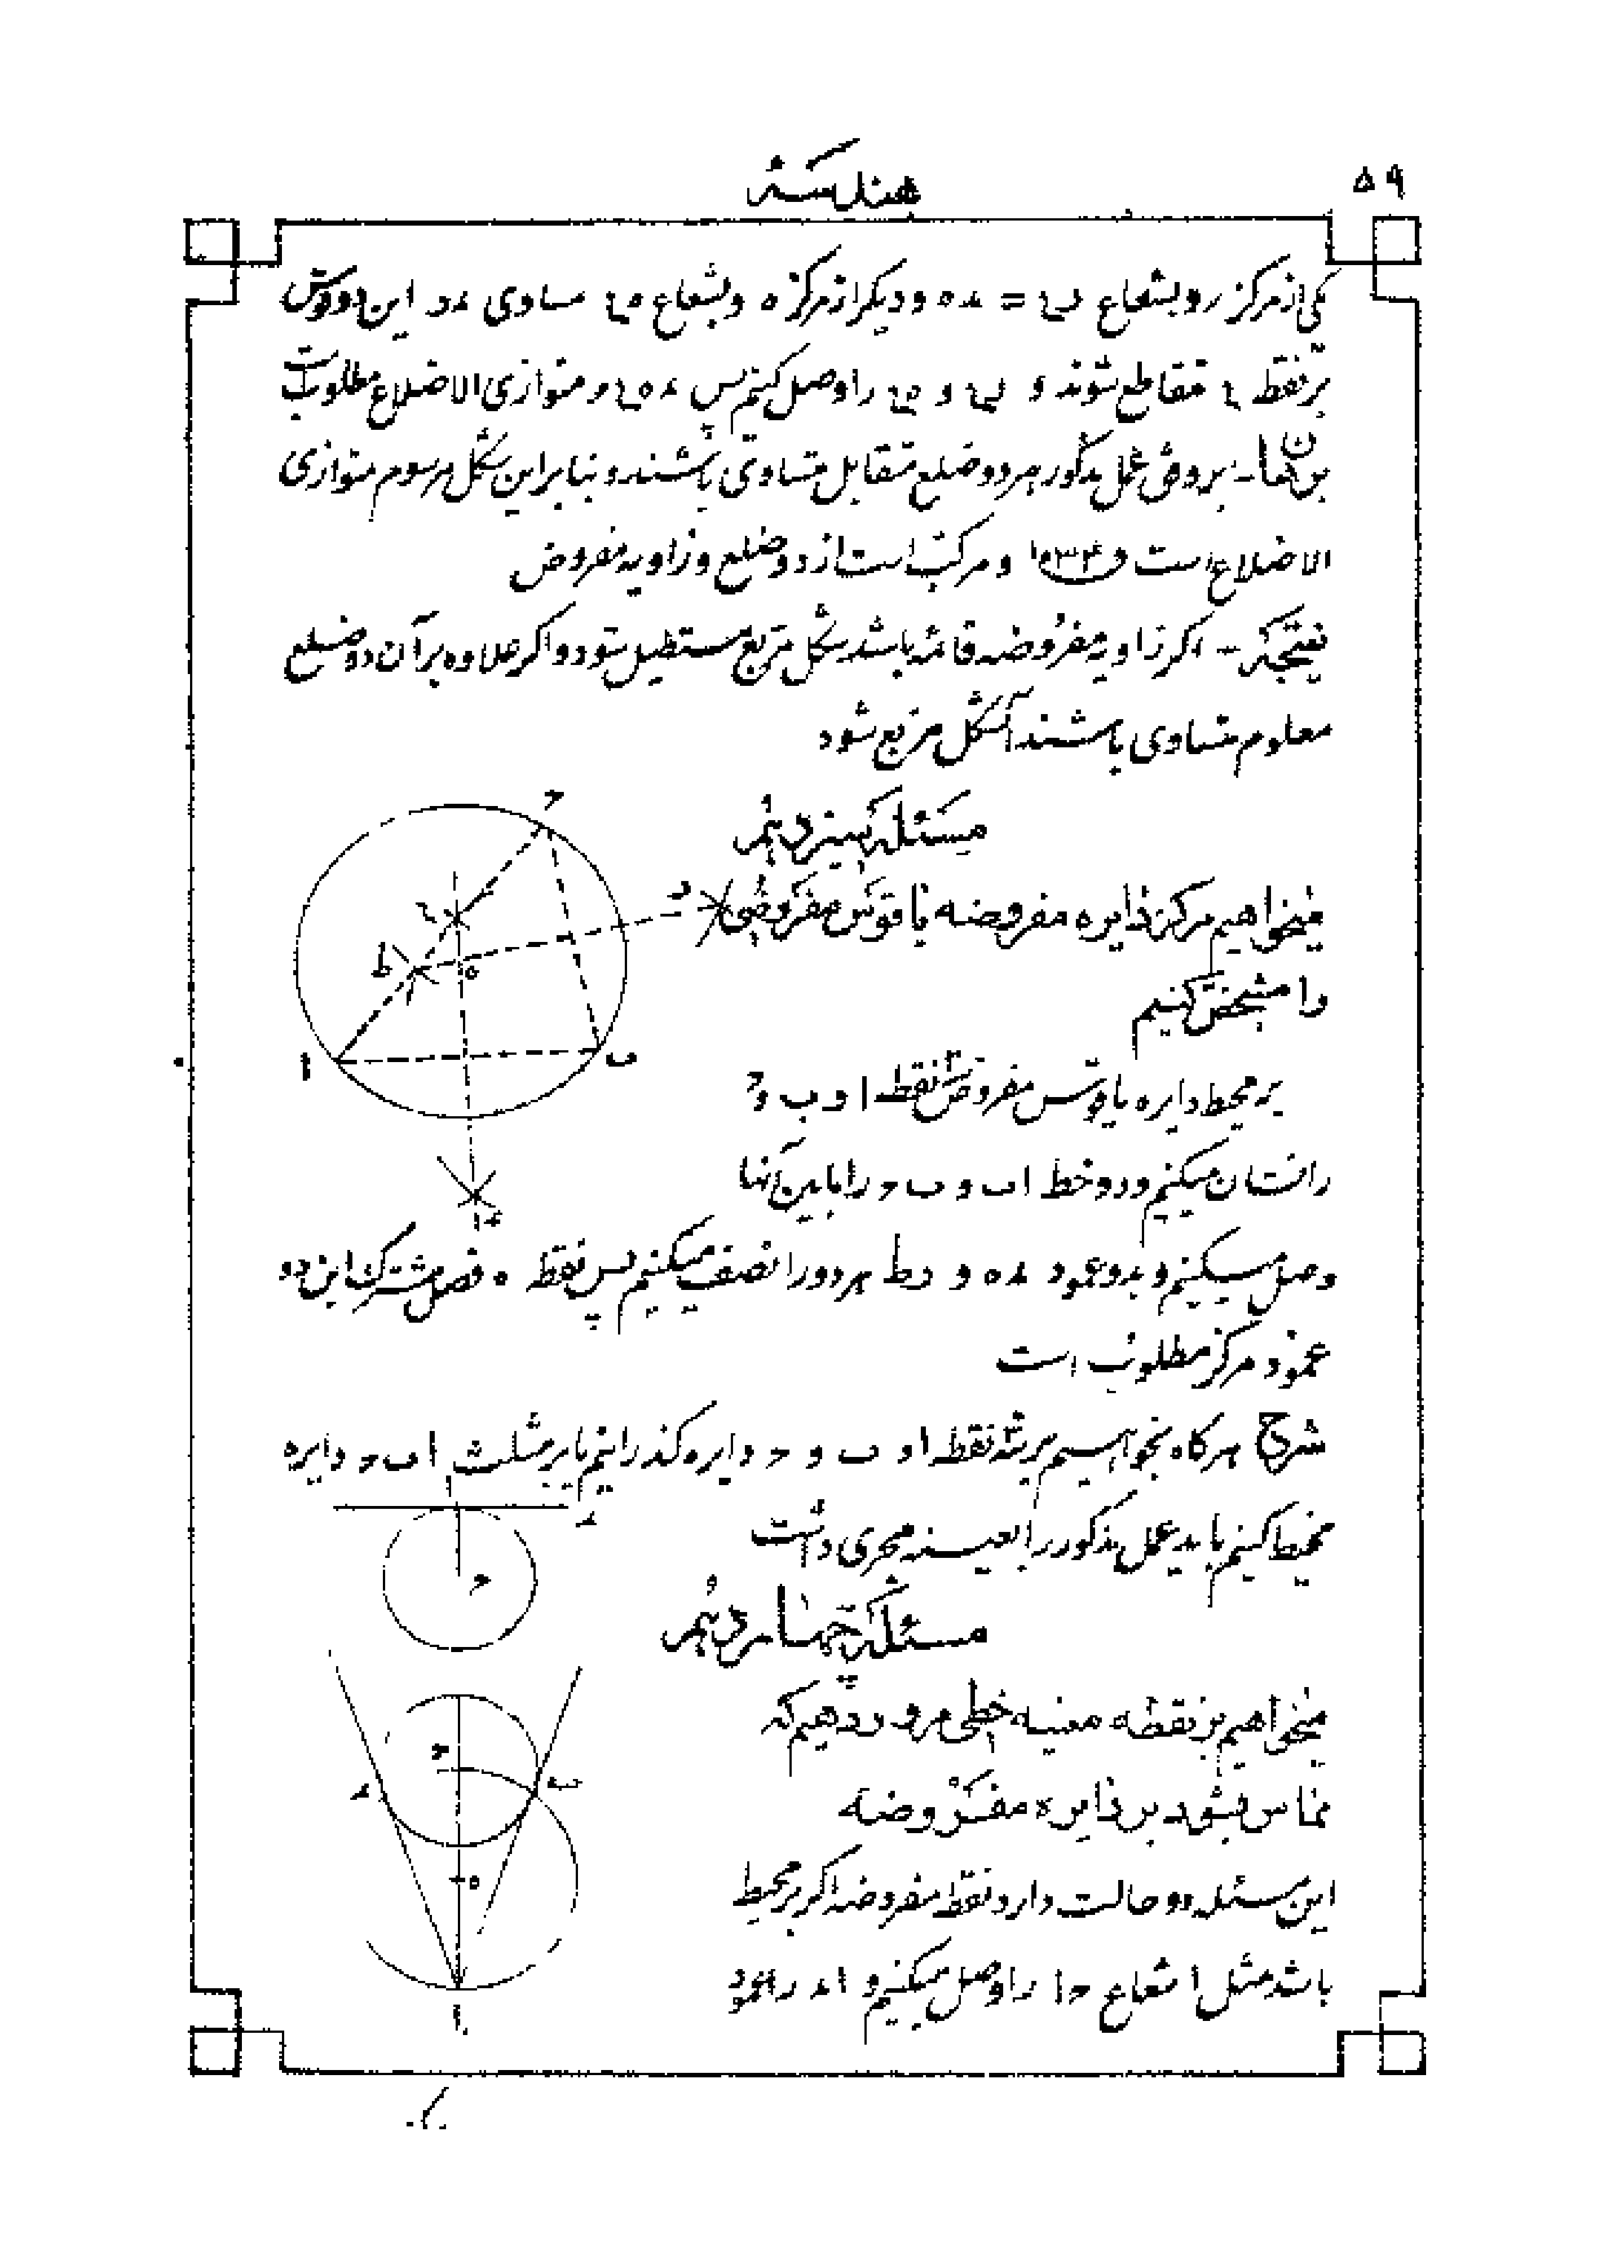 ۵۹
هندسه
یکی از مرکز ر و بشعاع = ء ه و دیکر از مرکز ه و بشعاع مساوی ء ر این دو قوس
بر نقطه متقاطع شوند و و را وصل کنیم پس متوازی الاضلاع مطلوبست
برهان ـ بر وفق عمل مذکور هر دو ضلع متقابل متساوی باشند و بنابراین شکل مرسوم متوازی
الاضلاع است و مرکب است از دو ضلع و زاویه مفروض
نتیجه ـ اکر زاویه مفروضه قائمه باشد شکل مربع مستطیل شود و اکر علاوه بر آن دو ضلع
معلوم متساوی باشند آنشکل مربع شود
مسئله سیزدهم
میخواهیم مرکز دایره مفروضه یا قوس مفروضی
را مشخص کنیم
بر محیط دایره یا قوس مفروض سه نقطه ا و ب و ح
را نشان میکنیم و دو خط اب و ب ح را مابین آنها
وصل میکنیم و بدو عمود ء ه و د ط هر دو را نصف میکنیم پس نقطه ه فصل مشترک این دو
عمود مرکز مطلوب است
شرح هر کاه بخواهیم بر سه نقطه ا و ب و ح دایره کذرانیم یا بر مثلث اب ح دایره
محیط کنیم باید عمل مذکور را بعینه مجری داشت
مسئله چهاردهم
میخواهیم بر نقطه معینه خطی مرور دهیم که
مماس بشود بر دایره مفروضه
این مسئله دو حالت دارد نقطه مفروضه اکر بر محیط
باشد مثل ا شعاع ح ا را وصل میکنیم و ا ء را عمود
ح
د
ط
ه
ا
ب
ء
ا
ء
ح
ح
ء
ب
ه
ا
بر